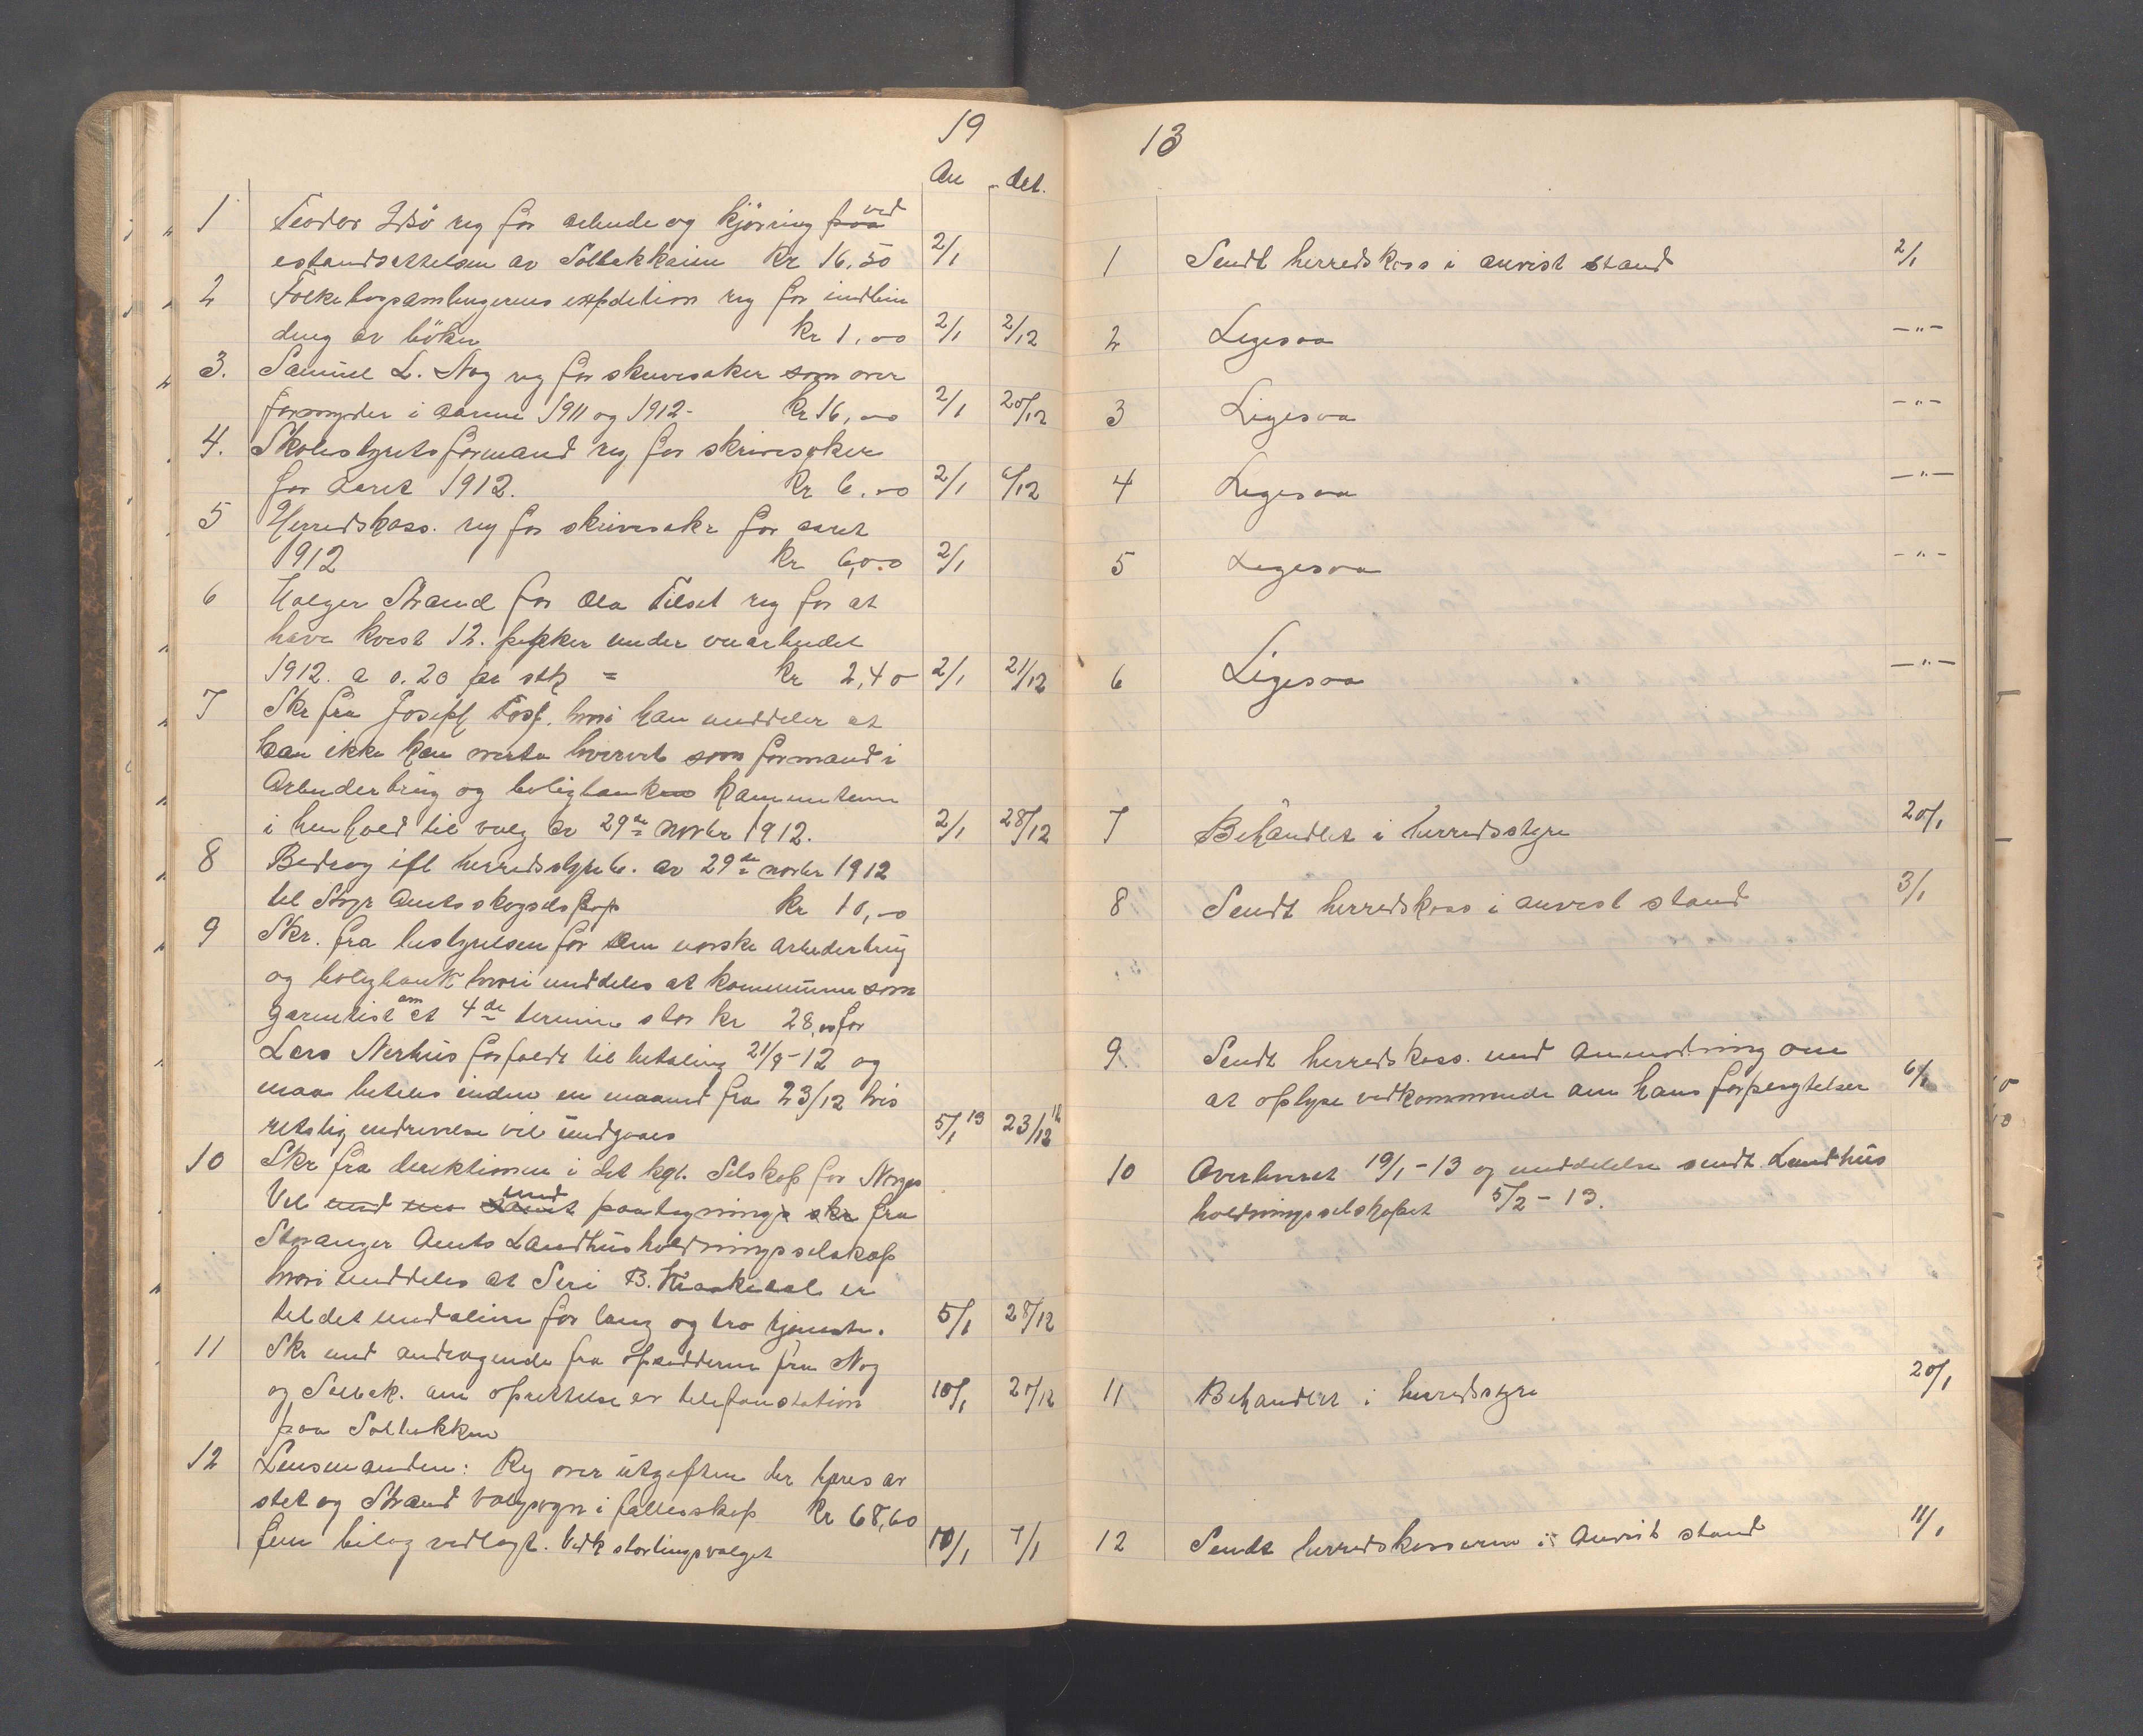 19
An det.
1 Teodor Idsö reg for arbeide og kjöring paa ved
istandsættelsen av Solbakkaien Kr 16,50 2/1
2 Folkebogsamlingernes expdition reg for indbin
ding av böker kr 1,00 2/1 2/12
3. Samuel L. Nag reg for skrivesaker som over
formynder i aarene 1911 og 1912- kr 16,00 2/1 20/12
4. Skolestyrets formand reg for skrivesaker
for aaret 1912. kr 6,00 2/1 6/12
5 Herredskass. reg for skrivesakr for aaret
1912 kr 6,00 2/1
6 Holger Strand for Ola Tilset reg for at
have kvest 12. pepker under veiarbeidet
1912. a 0.20 pr stk = kr 2,40 2/1 21/12
7 Skr fra Josepf Fosf. hvori han meddeler at
han ikke kan motta hvervet som formand i
Arbeiderbrug og boligbank kommiteen
i henhold til valg av 29de novbr 1912. 2/1 28/12
8 Bidrag ifl herredsstyreb. av 29de novbr 1912
til Stvgr Amts skogselskap kr 10,00
9 Skr. fra bestyrelsen for den norske arbederbrug
og boligbank hvori meddeles at kommunen som
garentist om et 4de termin stor kr 28,00 for
Lars Nerhus forfaldt til betaling 21/9-12 og
maa betales inden en maaned fra 23/12 hvis
retslig inddrivelse vil undgaaes 5/1 13 23/12 12
10 Skr fra direktionen i det kgl. Selskap for Norges
Vel med paategnings fra
Stavanger Amts Landhusholdningsselskap
hvori meddeles at Seri B. Kraakedal er
tildelt medalien for lang og tro tjeneste. 5/1 28/12
11 Skr med andragende fra opsidderne fra Nag
og Solbak. om oprettelse av telefonstation 10/1 21/12
paa Solbakken
12 Lensmanden: Reg over utgiften der hæres av
stet og Strand valgsogn i fællesskap kr 68,60
fem bilag vedlagt. Vedk stortingsvalget 10/1 7/1
13
1 Sendt herredskass i anvist stand 2/1
2 Ligesaa —"—
3 Ligesaa —"—
4 Ligesaa —"—
5 Ligesaa —"—
6 Ligesaa —"—
7 Behandlet i herredsstyre 20/1
8 Sendt herredskass i anvist stand 3/1
9 Sendt herredskass. med anmodning om
at oplyse vedkommende om hans forpergtelser 6/1
10 Overlevert 19/1-13 og meddelelse sendt Landhus
holdningsselskapet 5/2-13.
11 Behandlet i herredsstyre 20/1
12 Sendt herredskasseren i anvist stand 11/1